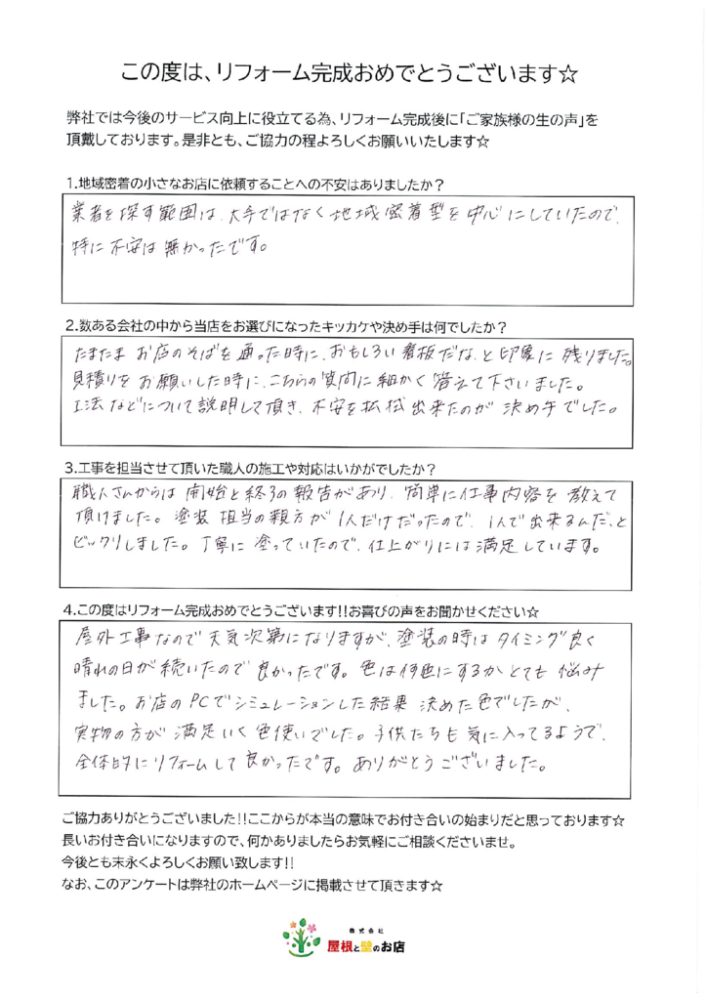 この度は、リフォーム完成おめでとうございます☆
弊社では今後のサービス向上に役立てる為、リフォーム完成後に「ご家族様の生の声」を
頂戴しております。是非とも、ご協力の程よろしくお願いいたします☆
1.地域密着の小さなお店に依頼することへの不安はありましたか？
業者を探す範囲は、大手ではなく地域密着型を中心にしていたので、
特に不安は無かったです。
2.数ある会社の中から当店をお選びになったキッカケや決め手は何でしたか？
たまたま お店のそばを通った時に、おもしろい看板だな、と印象に残りました。
見積りをお願いした時に、こちらの質問に細かく答えて下さいました。
工法などについて説明して頂き、不安を払拭出来たのが決め手でした。
3.工事を担当させて頂いた職人の施工や対応はいかがでしたか？
職人さんからは開始と終了の報告があり、簡単に仕事内容を教えて
頂けました。塗装担当の親方が1人だけだったので、1人で出来るんだ、と
ビックリしました。丁寧に塗っていたので、仕上がりには満足しています。
4.この度はリフォーム完成おめでとうございます!!お喜びの声をお聞かせください☆
屋外工事なので天気次第になりますが、塗装の時はタイミング良く
晴れの日が続いたので良かったです。色は何色にするかとても悩み
ました。お店のPCでシミュレーションした結果 決めた色でしたが、
実物の方が満足いく色使いでした。子供たちも気に入ってるようで、
全体的にリフォームして良かったです。ありがとうございました。
ご協力ありがとうございました!!ここからが本当の意味でお付き合いの始まりだと思っております☆
長いお付き合いになりますので、何かありましたらお気軽にご相談くださいませ。
今後とも末永くよろしくお願い致します!!
なお、このアンケートは弊社のホームページに掲載させて頂きます☆
株式会社
屋根と壁のお店